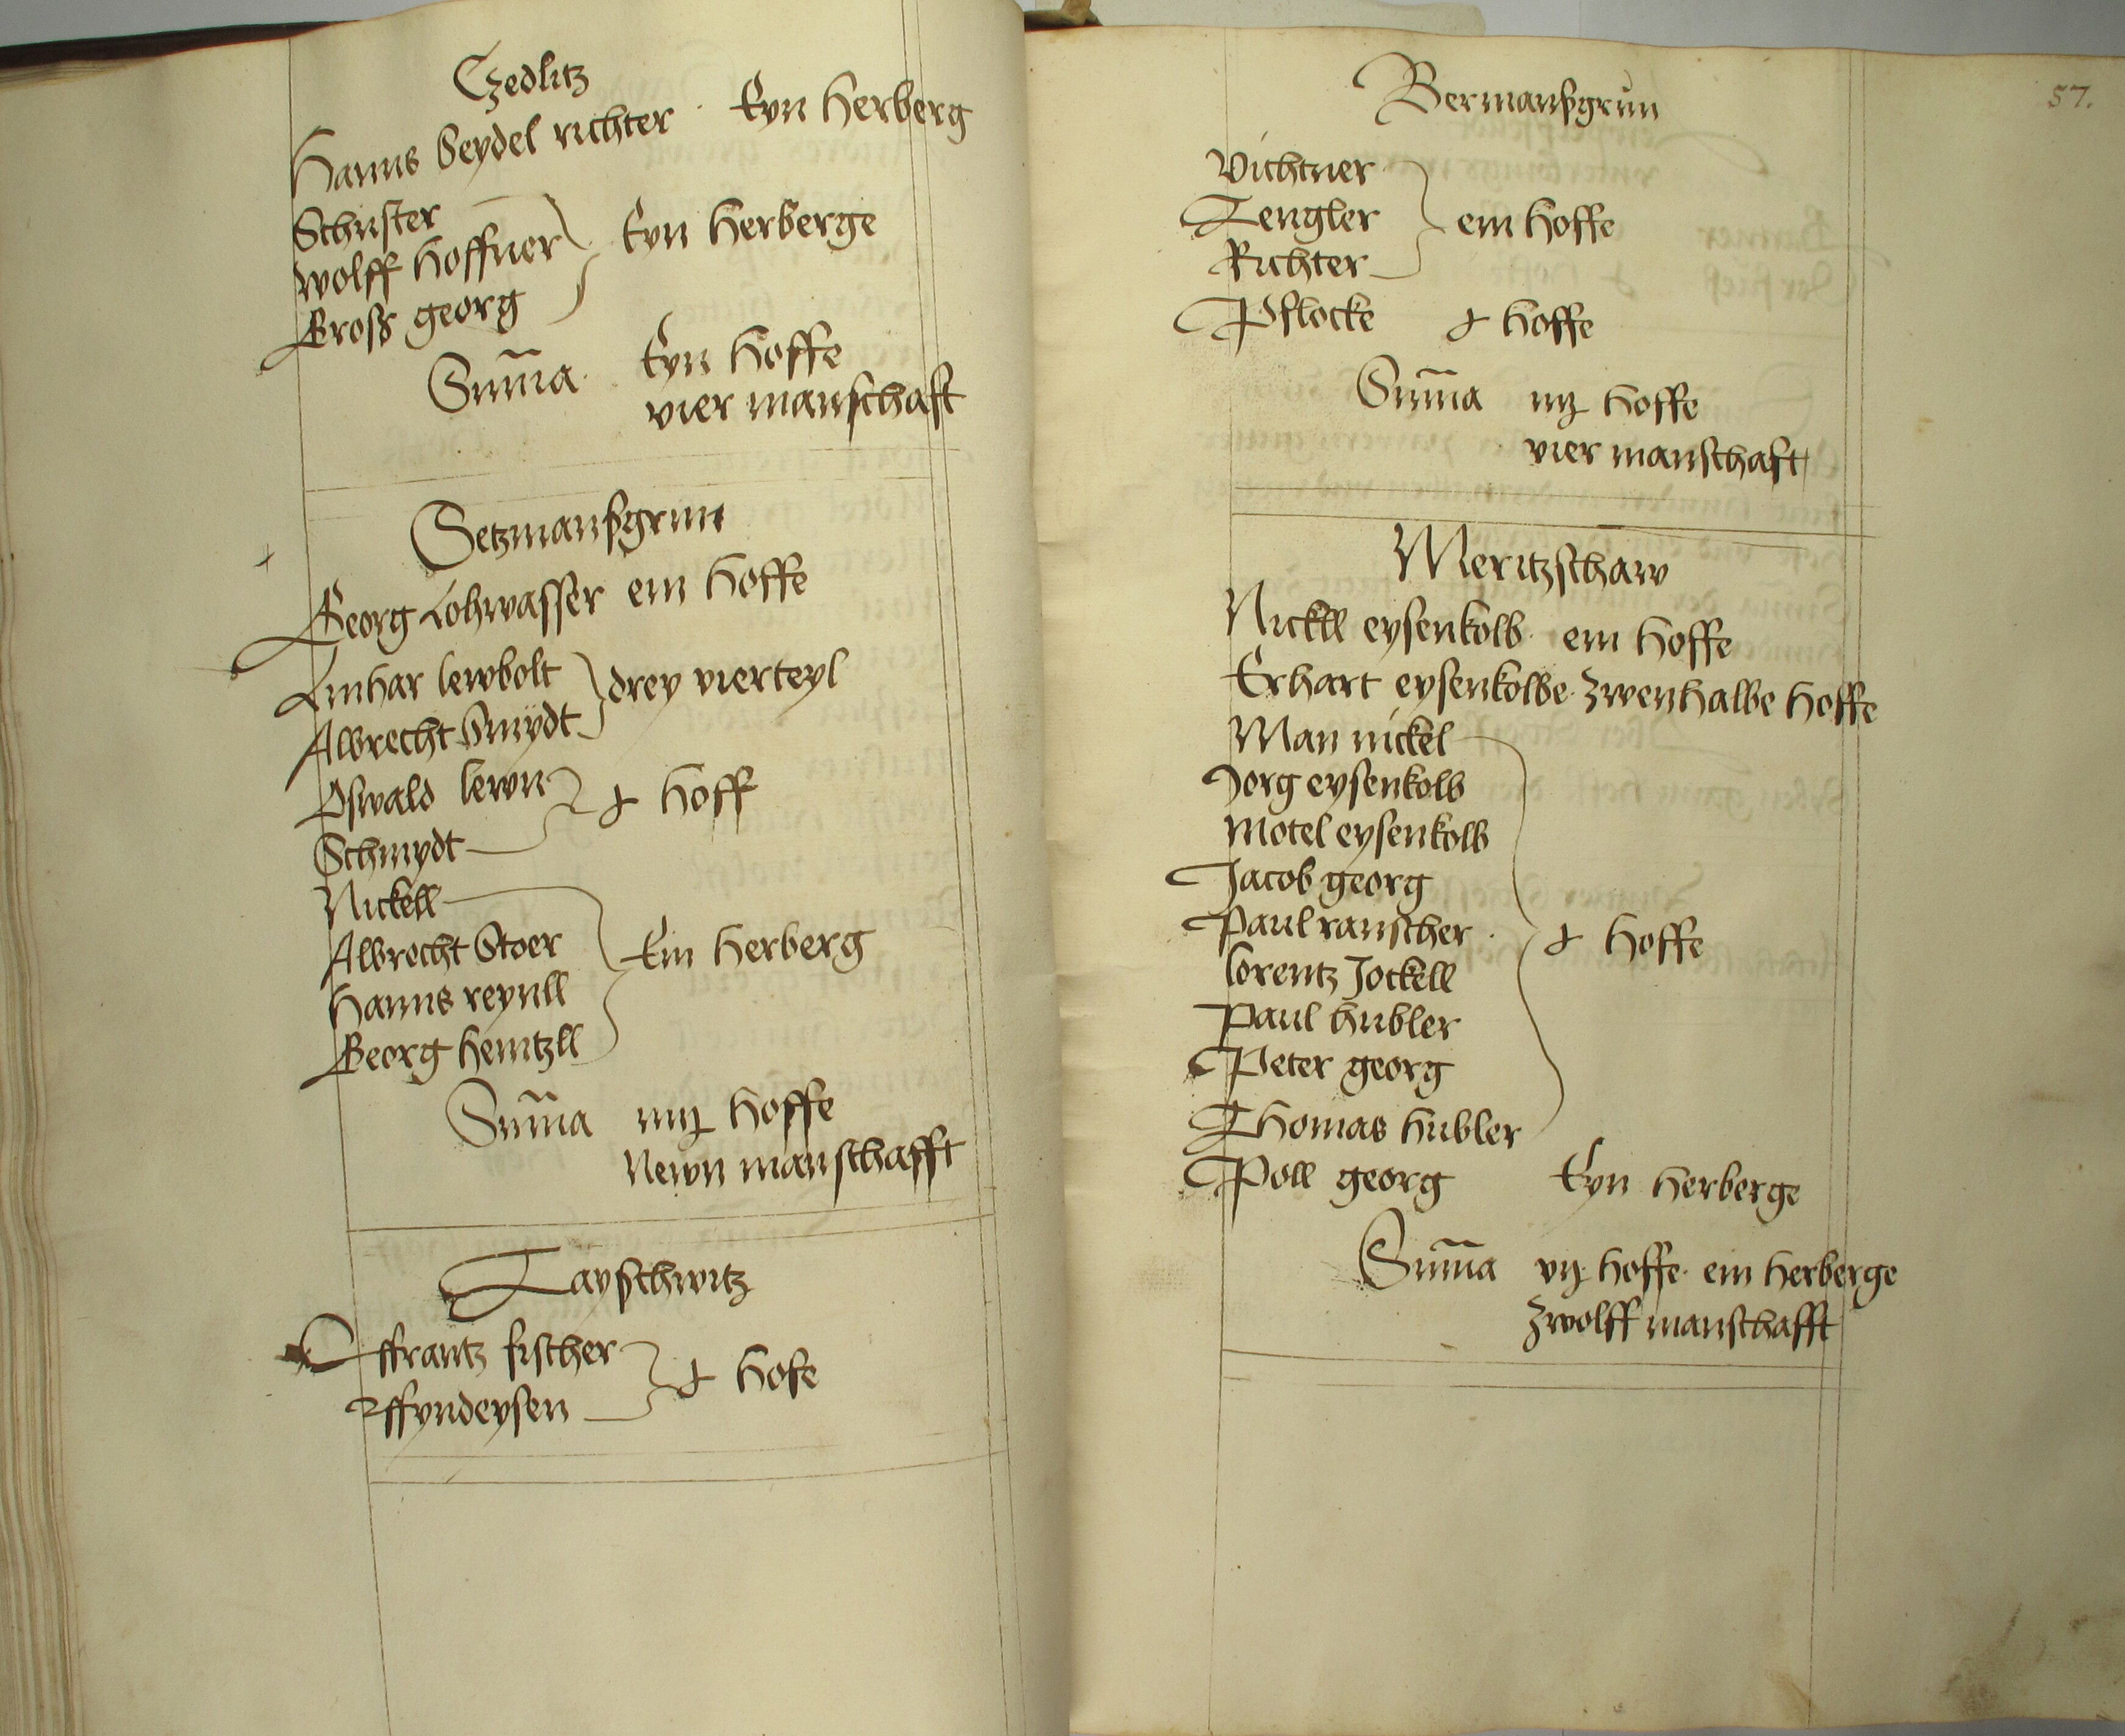 Czedlitz
Hanns Seydel richter Eyn Herberg
Schuster
Wolff Hoffner Eyn Herberge
Groß georg
Suma Eyn Hoffe
vier manschaft
Setzmanßgrun
Georg Lohwasser ein Hoffe
Linhar lewbolt drey vierteyl
Albrecht Smydt
Oswald lewn Hoff
Schmydt
Nickell
Albrecht Stoer Ein Herberg
Hanns reynll
Georg heintzll
Suma iiij Hoffe
Newn manschafft
Tayschwitz
ffrantz fischer Hofe
ffyndeysen
57.
Bermanßgrun
Vichtner
Tengler ein Hoffe
Richter
Pflocke Hoffe
Suma iij Hoffe
vier manschaft
Meritzschaw
Nickll eysenkolb ein Hoffe
Erhart eysenkolbe zwen halbe Hoffe
Man nickel
Jorg eysenkolb
Motel eysenkolb
Jacob georg
Paul rauscher Hoffe
lorentz Jockell
Paul hubler
Peter georg
Thomas hubler
Poll georg Eyn Herberge
Suma vij Hoffe ein Herberge
Zwolff manschafft